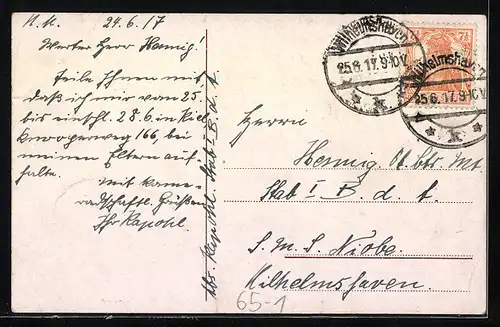 24.6.17
Werter Herr Hennig!
Teile Ihnen mit,
daß ich mir vom 25.
bis einschl. 28.6. in Kiel
166, bei
meinen Eltern auf-
halte.
Mit kame-
radschaftl. Grüßen
Ihr Rapohl.
Abs. Rapohl. Stab I B. d. A.
Wilhelmshaven
25.6.17.9-10V.
Wilhelmshaven
25.6.17.9-10V.
7½
Herrn
Hennig, Ob.
Stab I B. d. A.
S.M.S. Niobe.
Wilhelmshaven.
65-1